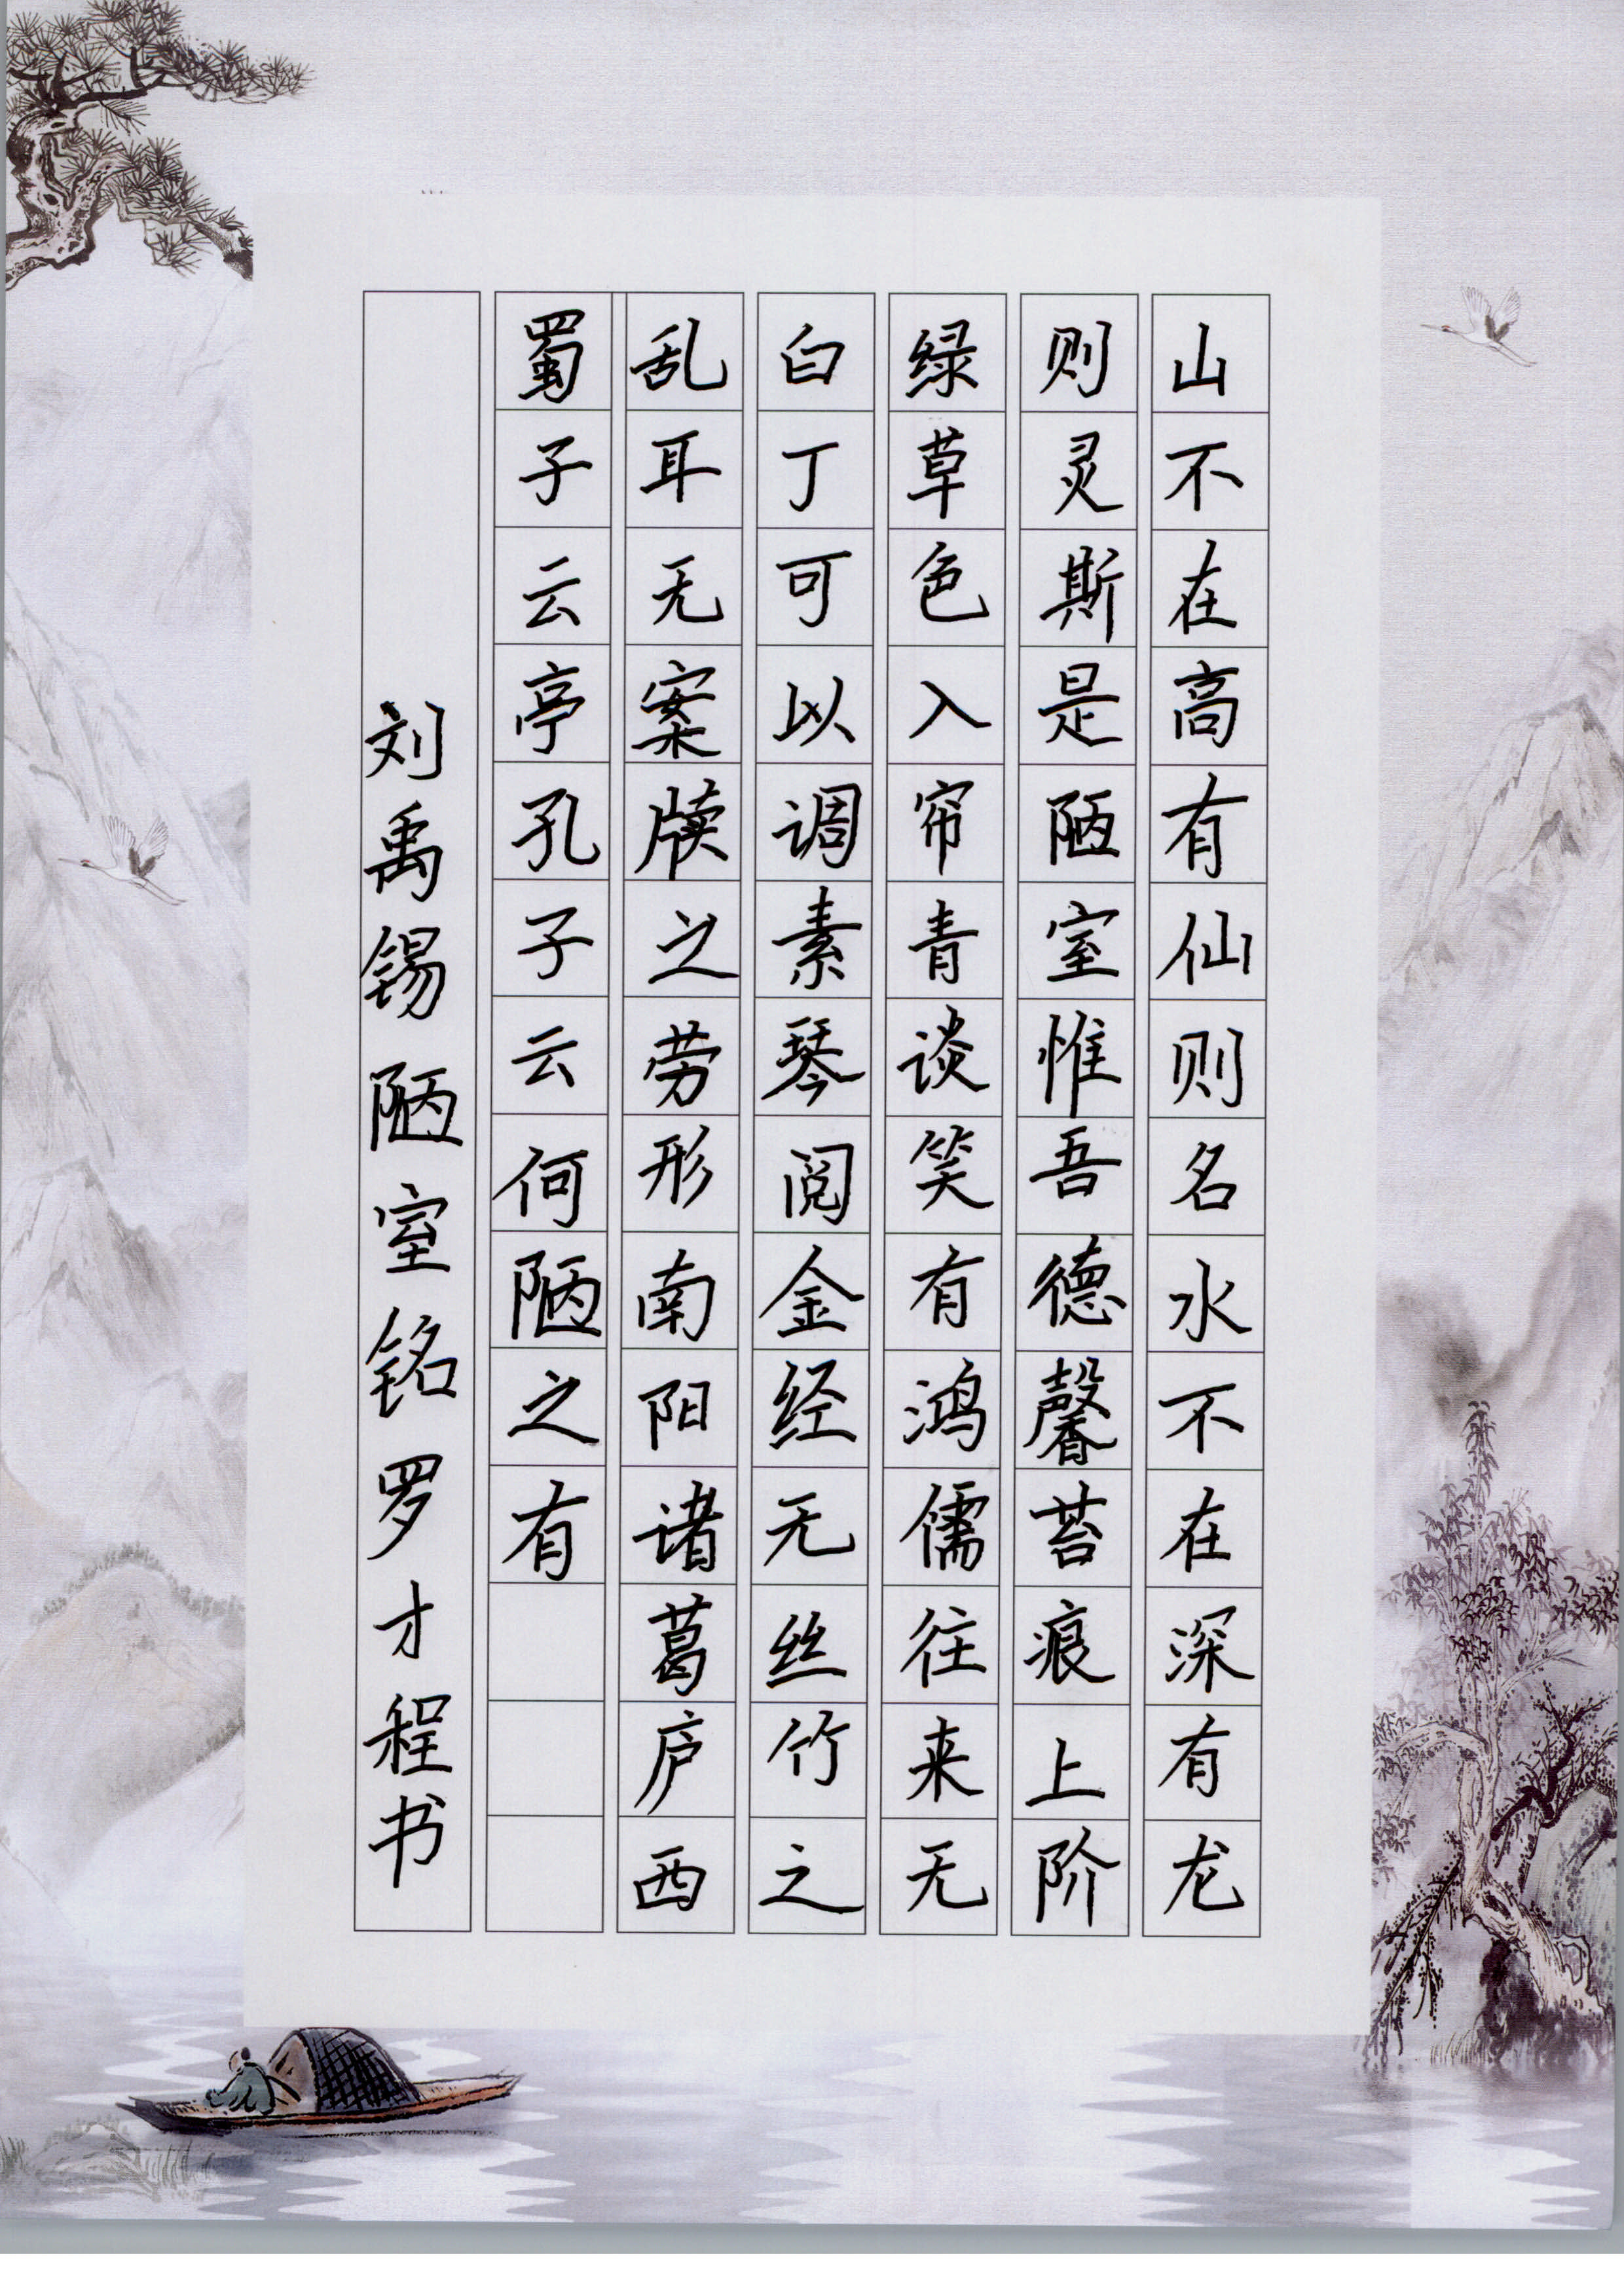 山不在高有仙则名水不在深有龙
则灵斯是陋室惟吾德馨苔痕上阶
绿草色入帘青谈笑有鸿儒往来无
白丁可以调素琴阅金经无丝竹之
乱耳无案牍之劳形南阳诸葛庐西
蜀子云亭孔子云何陋之有
刘禹锡陋室铭罗才程书